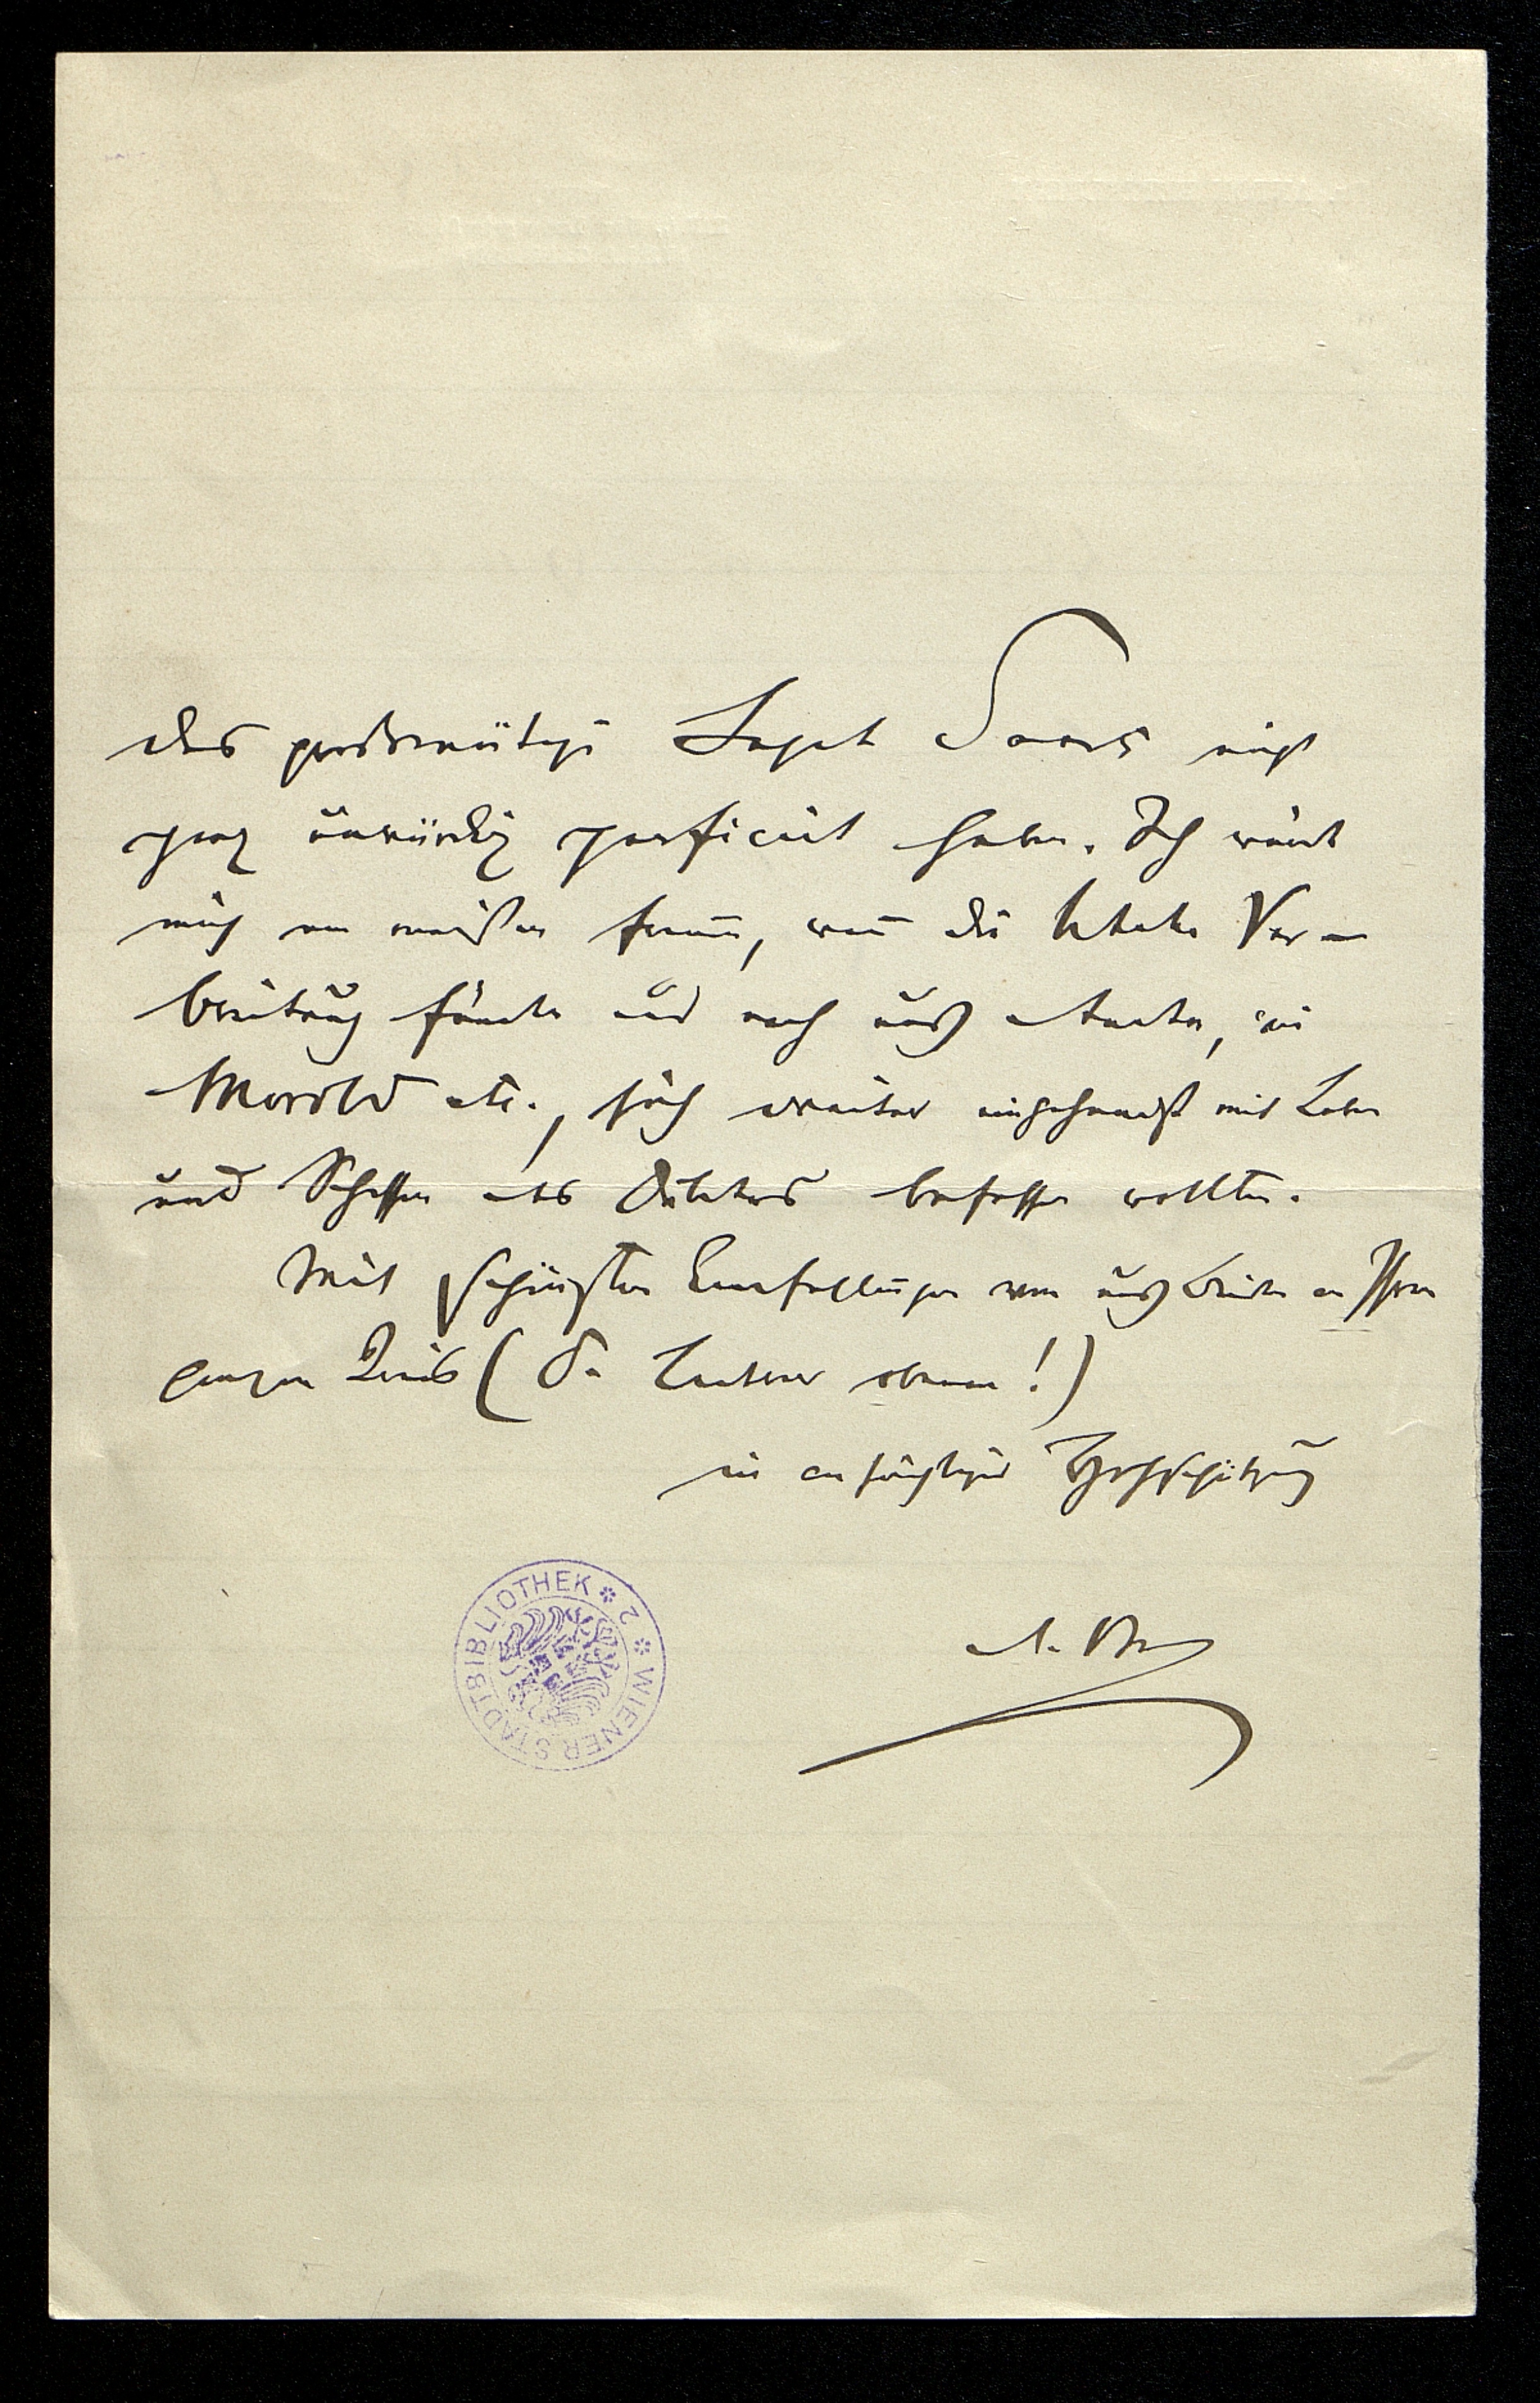 das großmütige Legat Saars nicht
ganz unwürdig parficirt haben. Ich würde
mich am meisten freuen, wenn die letzte Ver-
breitung fände und nach uns Andere, wie
Morold etc., sich weiter eingehendst mit Leben
und Schaffen des Dichters befassen wollten.
Mit schönsten Empfehlungen von uns beiden an Ihren
ganzen Kreis ( Dr. obenan!)
in aufrichtiger Hochschätzung
A. B
WIENER STADTBIBLIOTHEK * 2 *